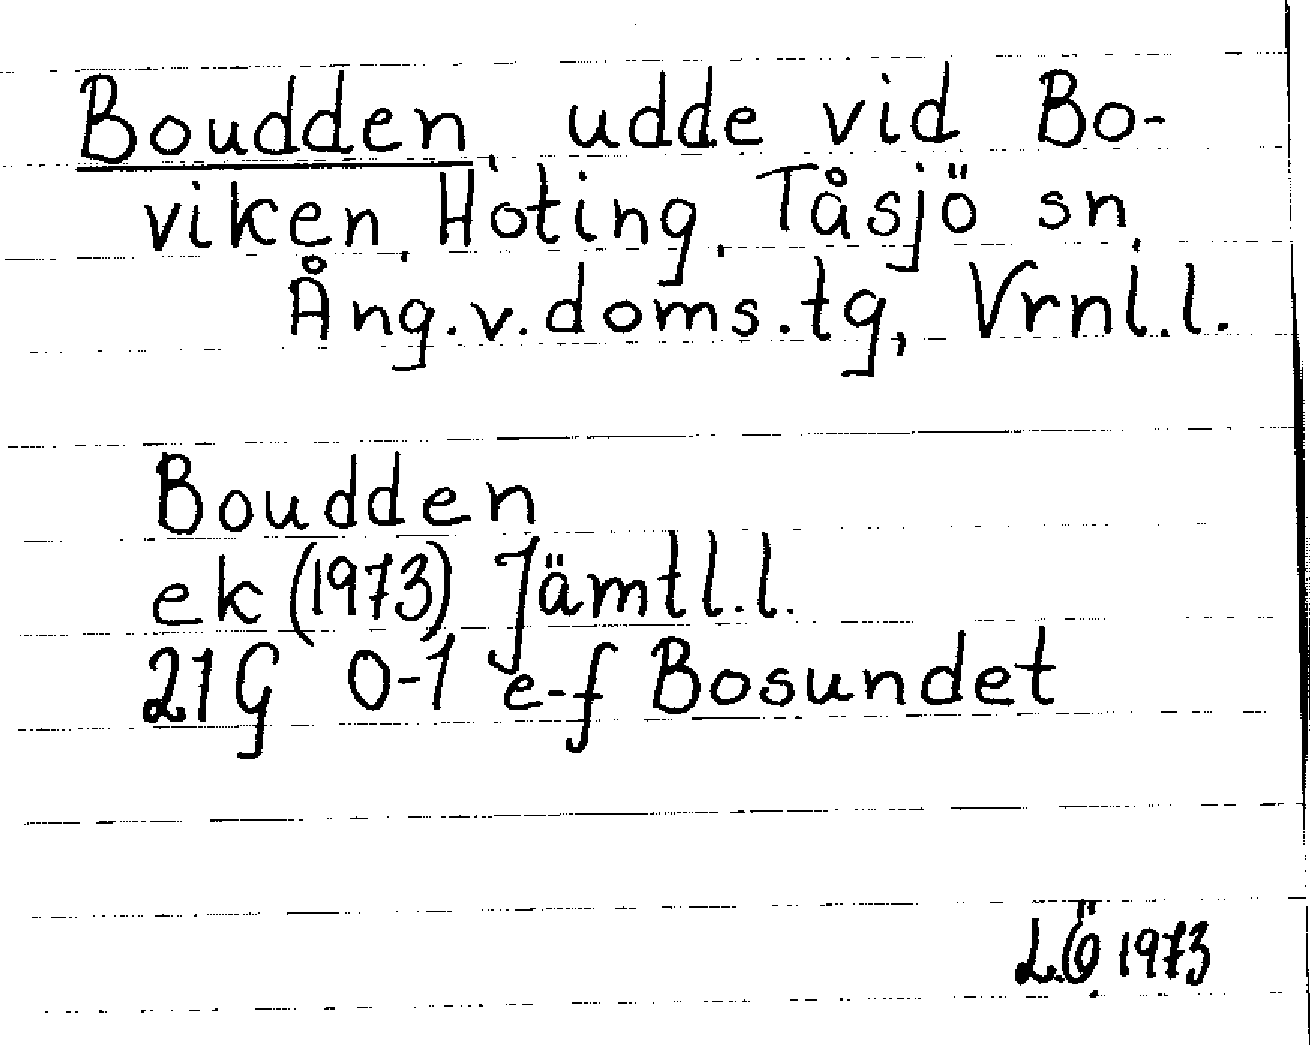 Boudden, udde vid Bo-
viken, Hoting, Tåsjö sn,
Ång.v.doms.tg, Vrnl.l.
Boudden
ek (1973) Jämtl.l.
21G 0-1 e-f Bosundet
L.Ö. 1973